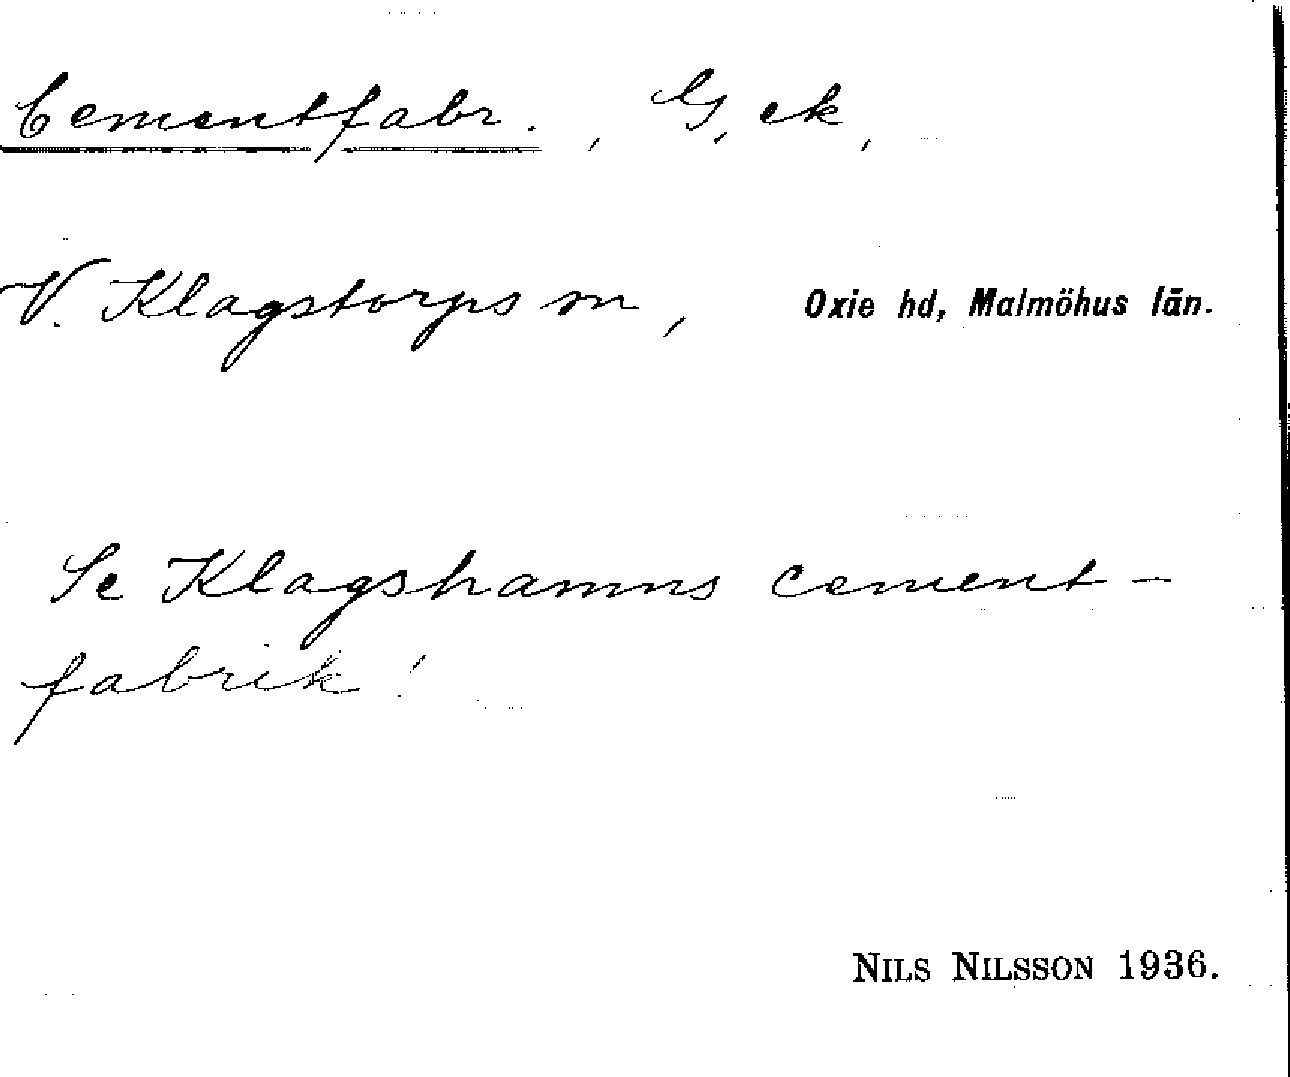 Cementfabr., G, ek,
V. Klagstorps sn, Oxie hd, Malmöhus län.
Se Klagshamns cement-
fabrik!
NILS NILSSON 1936.